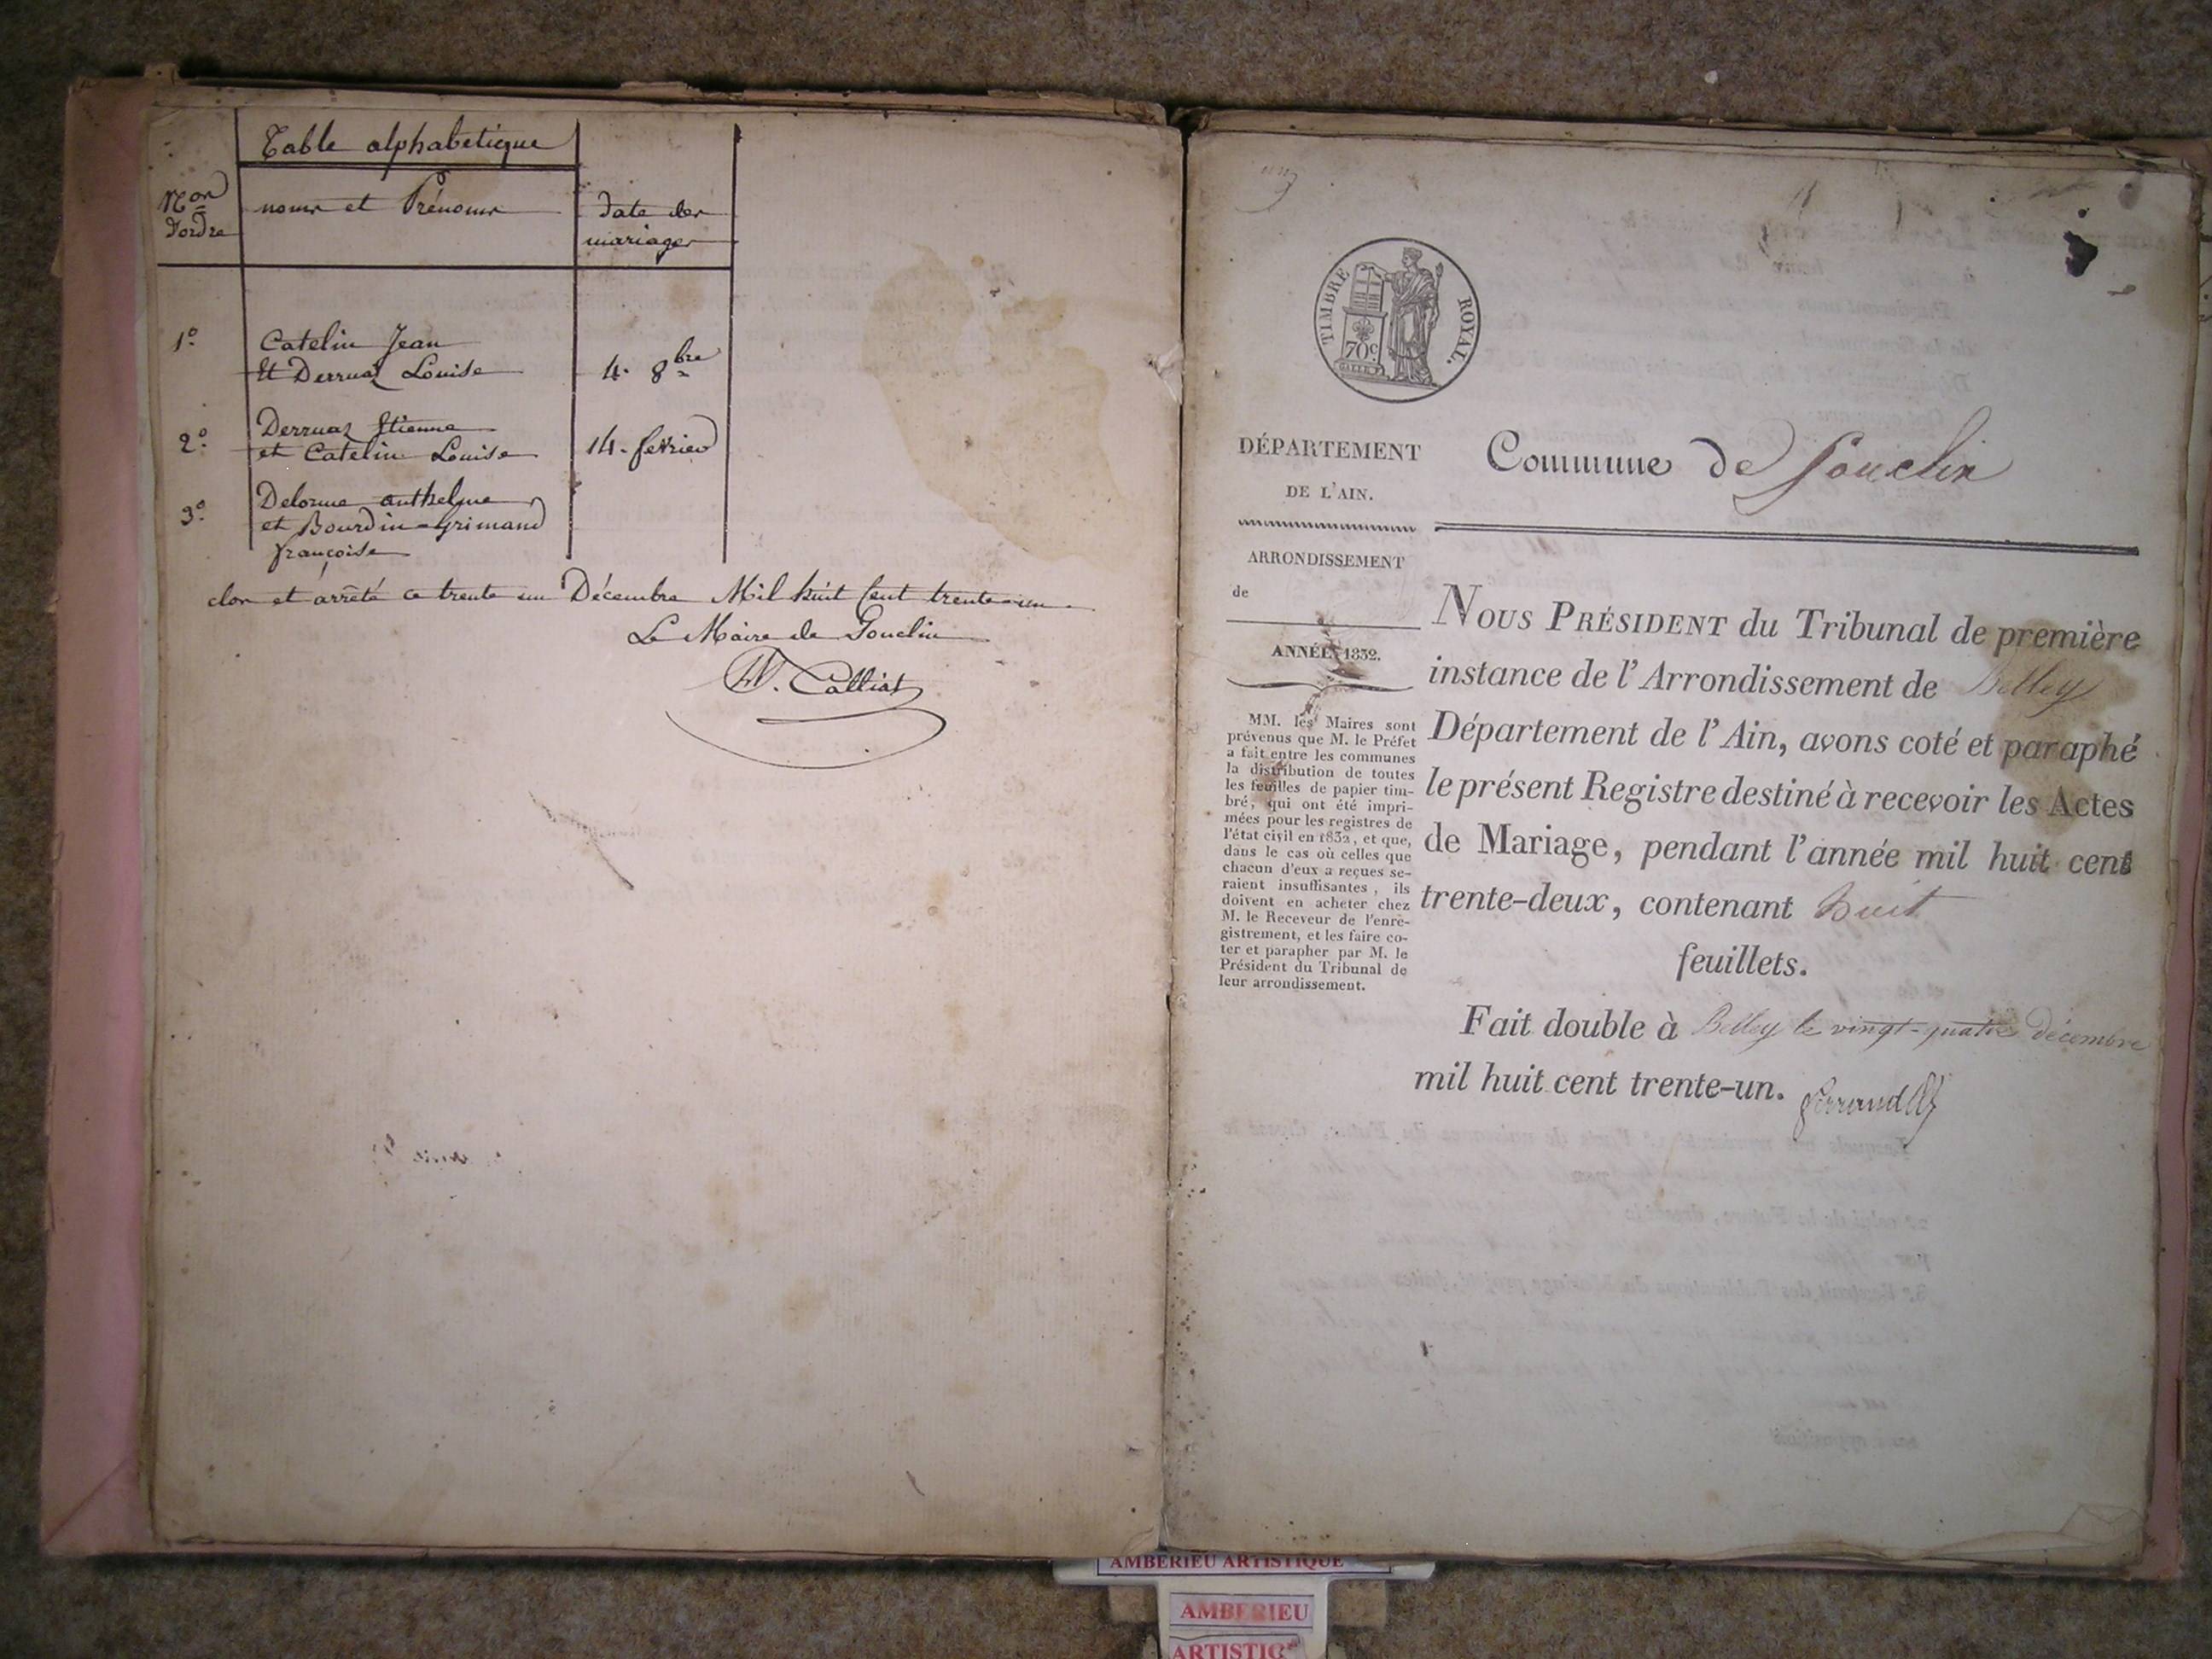 Table alphabetique
Nos
d'ordre
noms et Prénoms
date des
mariages
1°
Catelin Jean
Et Derruaz Louise
4. 8bre
2°
Derruaz Etienne
et Catelin Louise
14. fevrier
3°
Delorme anthelme
et Bourdin-grimaud
françoise
clos et arrêté ce trente un Décembre Mil huit Cent trente-un.
Le Maire de Souclin
Calliat
TIMBRE ROYAL.
70c
DÉPARTEMENT
DE L'AIN.
ARRONDISSEMENT
de
ANNÉE 1832.
MM. les Maires sont
prévenus que M. le Préfet
a fait entre les communes
la distribution de toutes
les feuilles de papier tim-
bré, qui ont été impri-
mées pour les registres de
l'état civil en 1832, et que,
dans le cas où celles que
chacun d'eux a reçues se-
raient insuffisantes, ils
doivent en acheter chez
M. le Receveur de l'enre-
gistrement, et les faire co-
ter et parapher par M. le
Président du Tribunal de
leur arrondissement.
Commune de Souclin
NOUS PRÉSIDENT du Tribunal de première
instance de l'Arrondissement de Belley
Département de l'Ain, avons coté et paraphé
le présent Registre destiné à recevoir les Actes
de Mariage, pendant l'année mil huit cent
trente-deux, contenant huit
feuillets.
Fait double à Belley le vingt-quatre décembre
mil huit cent trente-un.
AMBERIEU ARTISTIQUE
AMBERIEU